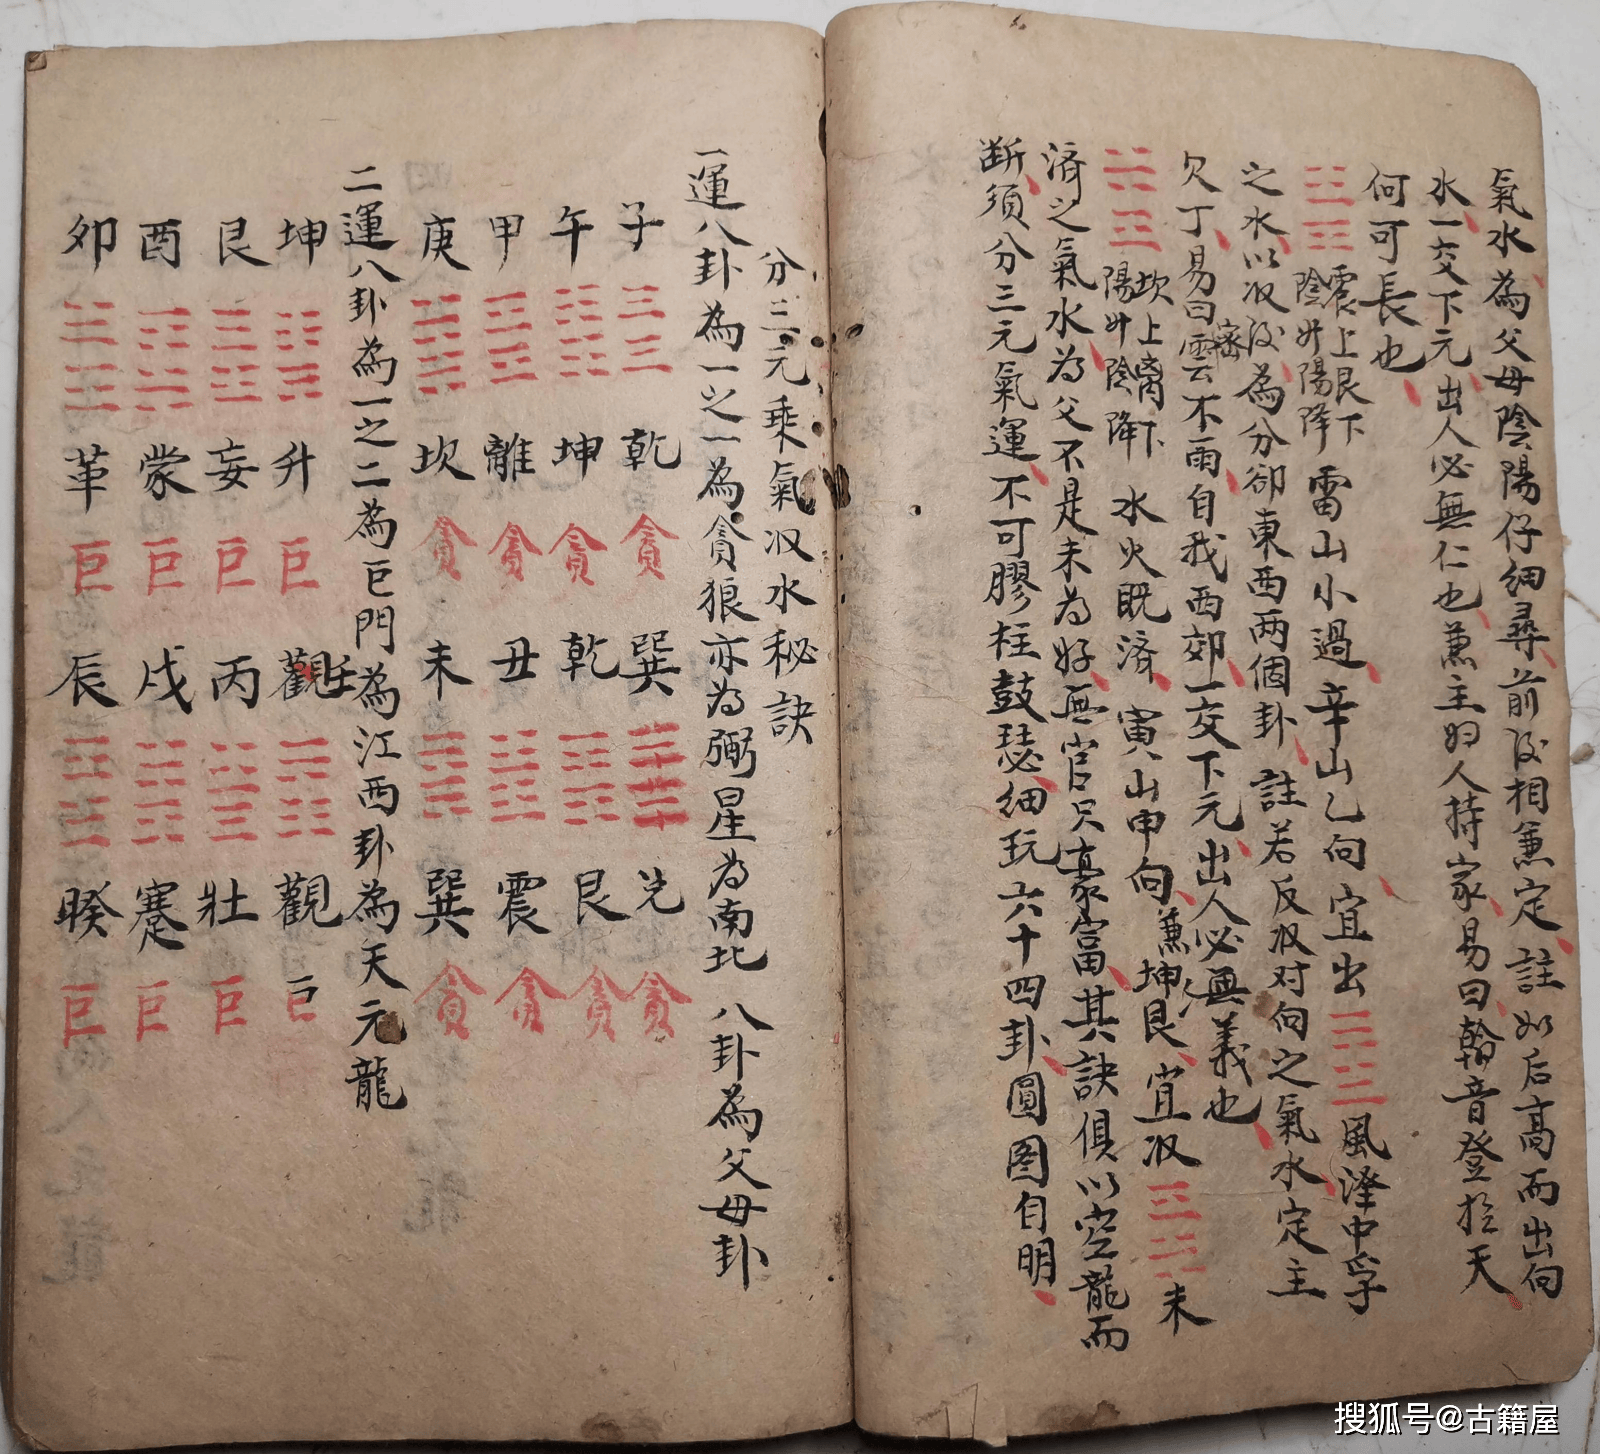 氣水為父母陰陽仔細尋前後相兼定註如后高而出向
水一交下元出人必無仁也兼主妇人持家易曰翰音登於天
何可長也
震上艮下
陰升陽降
雷山小過辛山乙向宜出
風澤中孚
之水以収後為分卻東西两個卦註若反収对向之氣水定主
欠丁易曰密雲不雨自我西郊一交下元出人必無義也
坎上离下
陽升陰降
水火既済寅山申向兼坤艮宜収
未
済之氣水為父不是未為好無官只豪富其訣俱以空龍而
断須分三元氣運不可膠柱鼓瑟細玩六十四卦圓图自明
分三元乘氣収水秘訣
一運八卦為一之一為貪狼亦為弼星為南北八卦為父母卦
子 乾 貪 巽 兑 貪
午 坤 貪 乾 艮 貪
甲 離 貪 丑 震 貪
庚 坎 貪 未 巽 貪
二運八卦為一之二為巨門為江西卦為天元龍
坤 升 巨 觀壬 觀 巨
艮 妄 巨 丙 壯 巨
酉 蒙 巨 戌 蹇 巨
卯 革 巨 辰 睽 巨
搜狐号@古籍屋